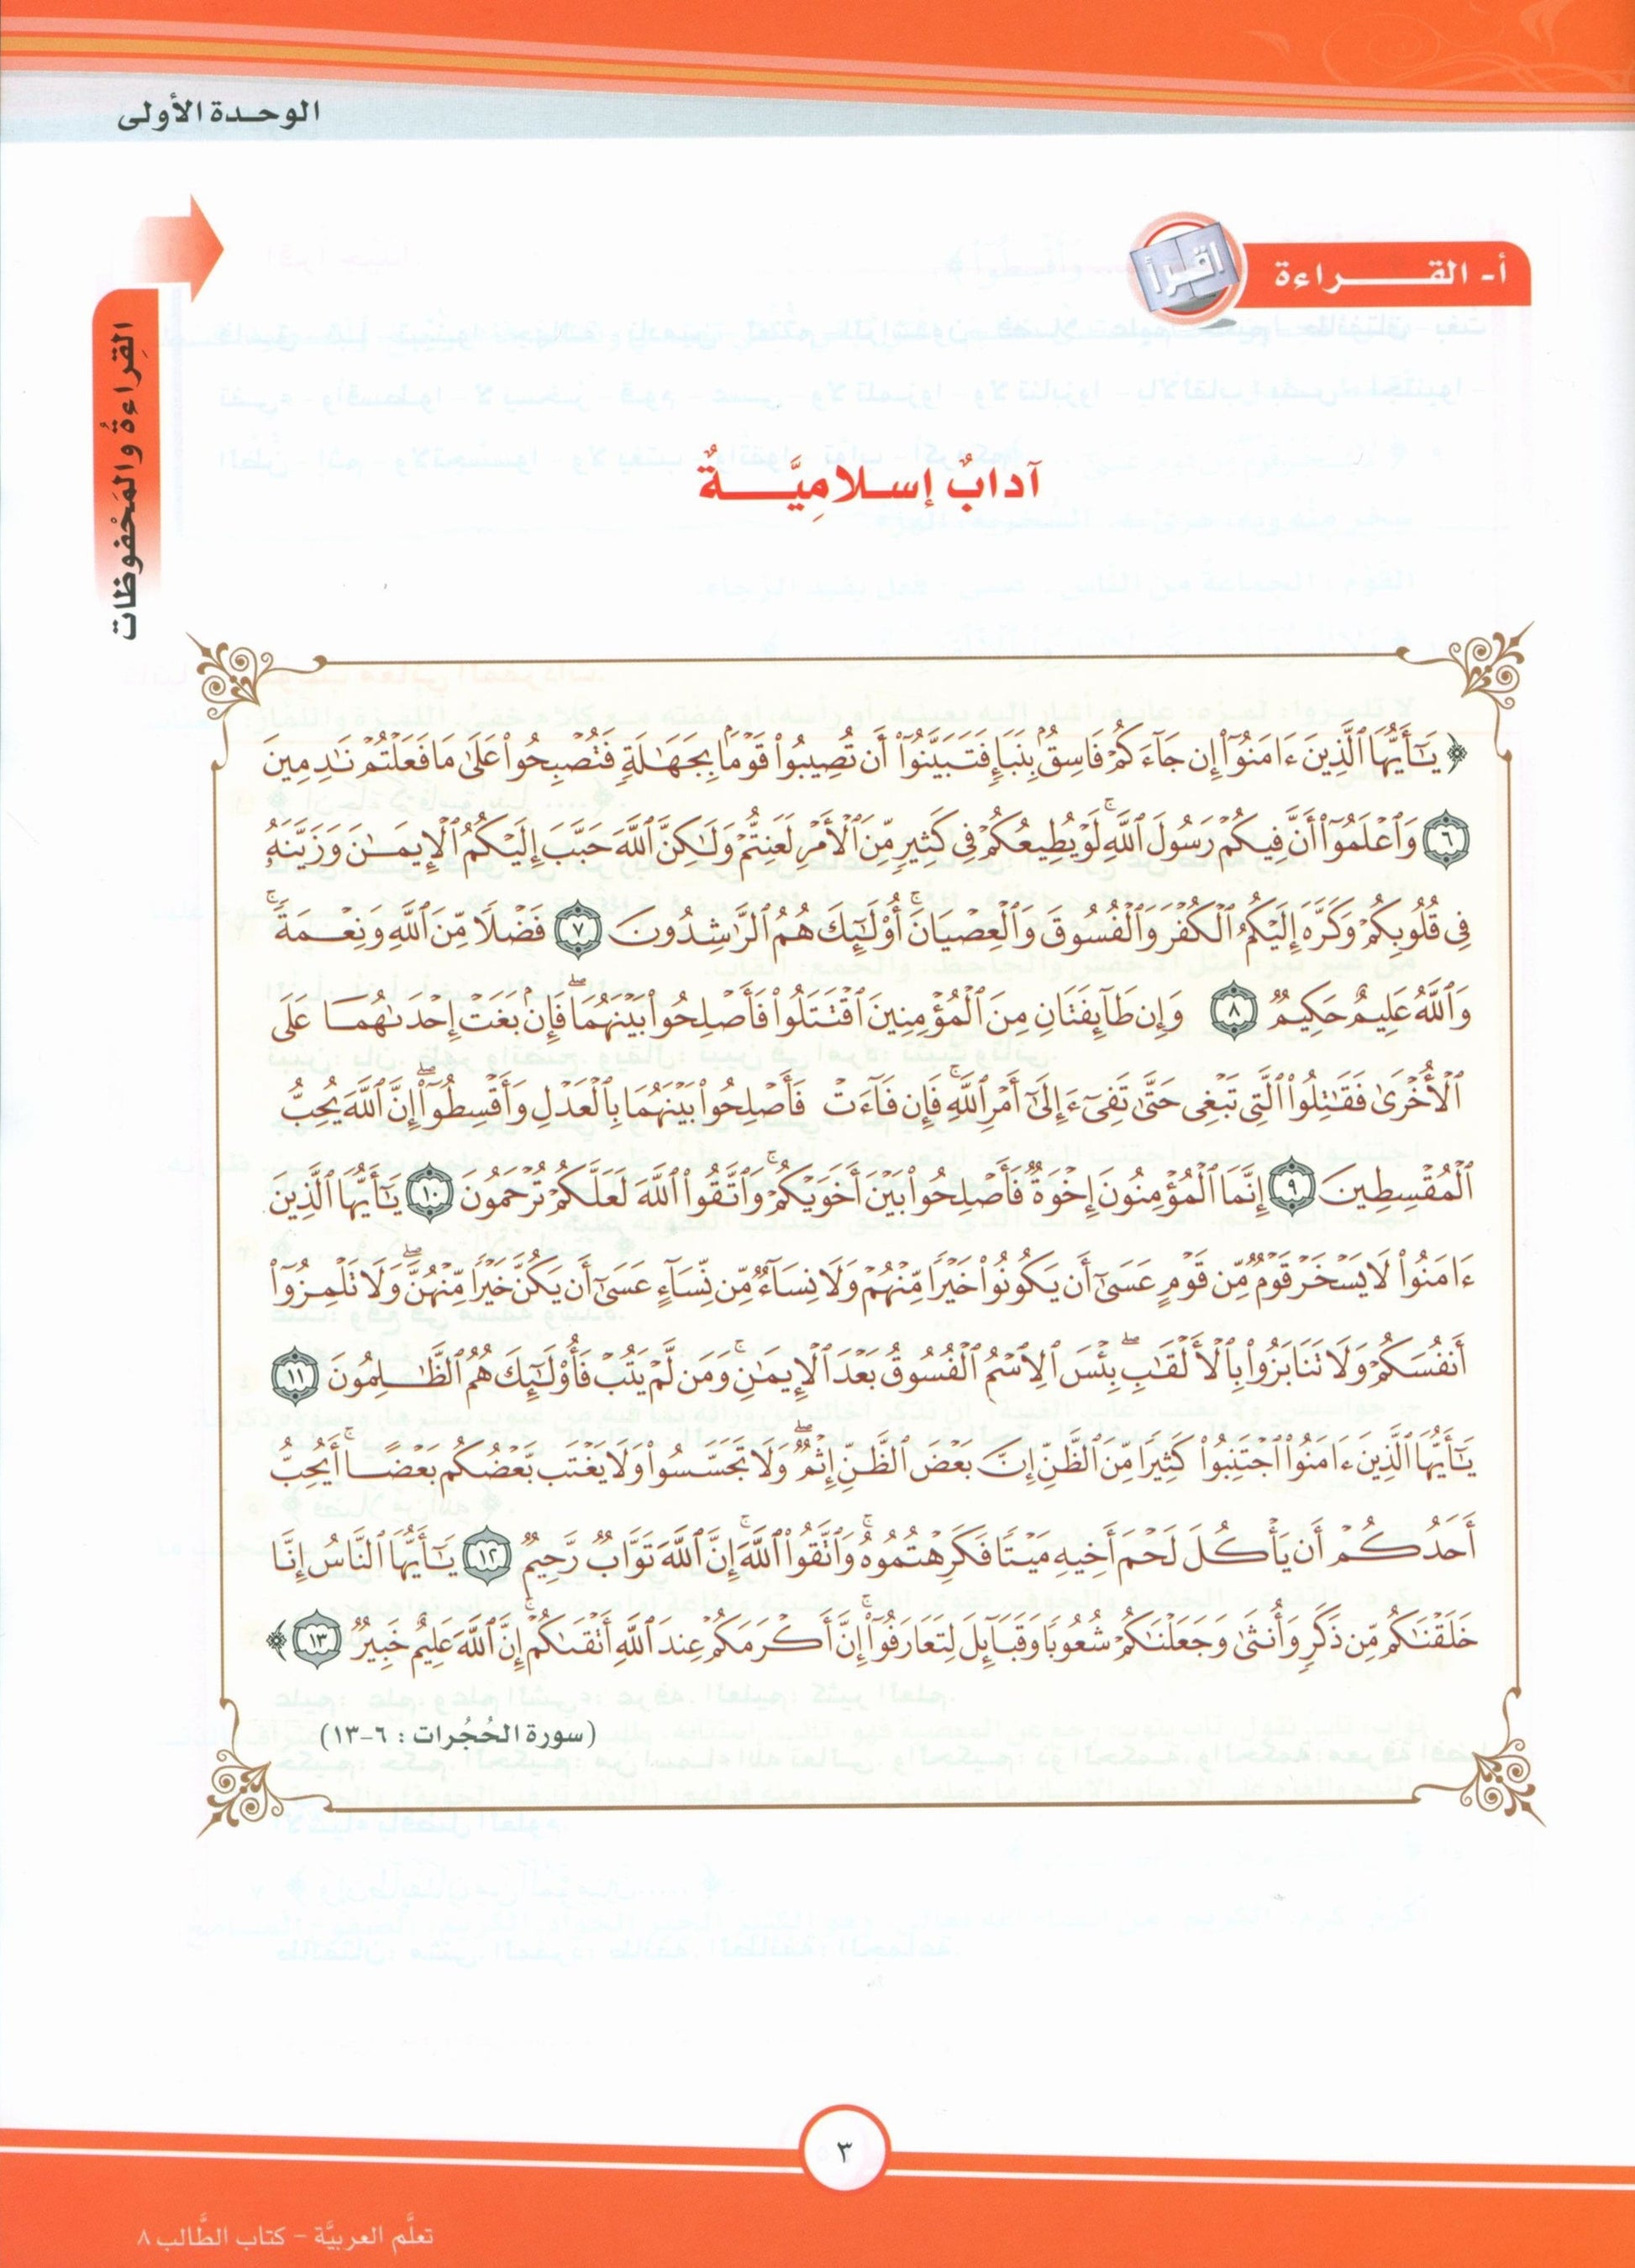 الوحدة الأولى
أ- القراءة
اقرأ
القِراءةُ والمَحْفوظات
آدابٌ إسلامِيَّةٌ
﴿ يَٰٓأَيُّهَا ٱلَّذِينَ ءَامَنُوٓا۟ إِن جَآءَكُمْ فَاسِقٌۢ بِنَبَإٍ فَتَبَيَّنُوٓا۟ أَن تُصِيبُوا۟ قَوْمًۢا بِجَهَٰلَةٍ فَتُصْبِحُوا۟ عَلَىٰ مَا فَعَلْتُمْ نَٰدِمِينَ
٦ وَٱعْلَمُوٓا۟ أَنَّ فِيكُمْ رَسُولَ ٱللَّهِ ۚ لَوْ يُطِيعُكُمْ فِى كَثِيرٍ مِّنَ ٱلْأَمْرِ لَعَنِتُّمْ وَلَٰكِنَّ ٱللَّهَ حَبَّبَ إِلَيْكُمُ ٱلْإِيمَٰنَ وَزَيَّنَهُۥ
فِى قُلُوبِكُمْ وَكَرَّهَ إِلَيْكُمُ ٱلْكُفْرَ وَٱلْفُسُوقَ وَٱلْعِصْيَانَ ۚ أُو۟لَٰٓئِكَ هُمُ ٱلرَّٰشِدُونَ ٧ فَضْلًا مِّنَ ٱللَّهِ وَنِعْمَةً ۚ
وَٱللَّهُ عَلِيمٌ حَكِيمٌ ٨ وَإِن طَآئِفَتَانِ مِنَ ٱلْمُؤْمِنِينَ ٱقْتَتَلُوا۟ فَأَصْلِحُوا۟ بَيْنَهُمَا ۖ فَإِنۢ بَغَتْ إِحْدَىٰهُمَا عَلَى
ٱلْأُخْرَىٰ فَقَٰتِلُوا۟ ٱلَّتِى تَبْغِى حَتَّىٰ تَفِىٓءَ إِلَىٰٓ أَمْرِ ٱللَّهِ ۚ فَإِن فَآءَتْ فَأَصْلِحُوا۟ بَيْنَهُمَا بِٱلْعَدْلِ وَأَقْسِطُوٓا۟ ۖ إِنَّ ٱللَّهَ يُحِبُّ
ٱلْمُقْسِطِينَ ٩ إِنَّمَا ٱلْمُؤْمِنُونَ إِخْوَةٌ فَأَصْلِحُوا۟ بَيْنَ أَخَوَيْكُمْ ۚ وَٱتَّقُوا۟ ٱللَّهَ لَعَلَّكُمْ تُرْحَمُونَ ١٠ يَٰٓأَيُّهَا ٱلَّذِينَ
ءَامَنُوا۟ لَا يَسْخَرْ قَوْمٌ مِّن قَوْمٍ عَسَىٰٓ أَن يَكُونُوا۟ خَيْرًا مِّنْهُمْ وَلَا نِسَآءٌ مِّن نِّسَآءٍ عَسَىٰٓ أَن يَكُنَّ خَيْرًا مِّنْهُنَّ ۖ وَلَا تَلْمِزُوٓا۟
أَنفُسَكُمْ وَلَا تَنَابَزُوا۟ بِٱلْأَلْقَٰبِ ۖ بِئْسَ ٱلِٱسْمُ ٱلْفُسُوقُ بَعْدَ ٱلْإِيمَٰنِ ۚ وَمَن لَّمْ يَتُبْ فَأُو۟لَٰٓئِكَ هُمُ ٱلظَّٰلِمُونَ ١١
يَٰٓأَيُّهَا ٱلَّذِينَ ءَامَنُوا۟ ٱجْتَنِبُوا۟ كَثِيرًا مِّنَ ٱلظَّنِّ إِنَّ بَعْضَ ٱلظَّنِّ إِثْمٌ ۖ وَلَا تَجَسَّسُوا۟ وَلَا يَغْتَب بَّعْضُكُم بَعْضًا ۚ أَيُحِبُّ
أَحَدُكُمْ أَن يَأْكُلَ لَحْمَ أَخِيهِ مَيْتًا فَكَرِهْتُمُوهُ ۚ وَٱتَّقُوا۟ ٱللَّهَ ۚ إِنَّ ٱللَّهَ تَوَّابٌ رَّحِيمٌ ١٢ يَٰٓأَيُّهَا ٱلنَّاسُ إِنَّا
خَلَقْنَٰكُم مِّن ذَكَرٍ وَأُنثَىٰ وَجَعَلْنَٰكُمْ شُعُوبًا وَقَبَآئِلَ لِتَعَارَفُوٓا۟ ۚ إِنَّ أَكْرَمَكُمْ عِندَ ٱللَّهِ أَتْقَىٰكُمْ ۚ إِنَّ ٱللَّهَ عَلِيمٌ خَبِيرٌ ١٣ ﴾
(سورة الحُجُرات : ٦-١٣)
٣
تعلَّم العربيَّة - كتاب الطَّالب ٨